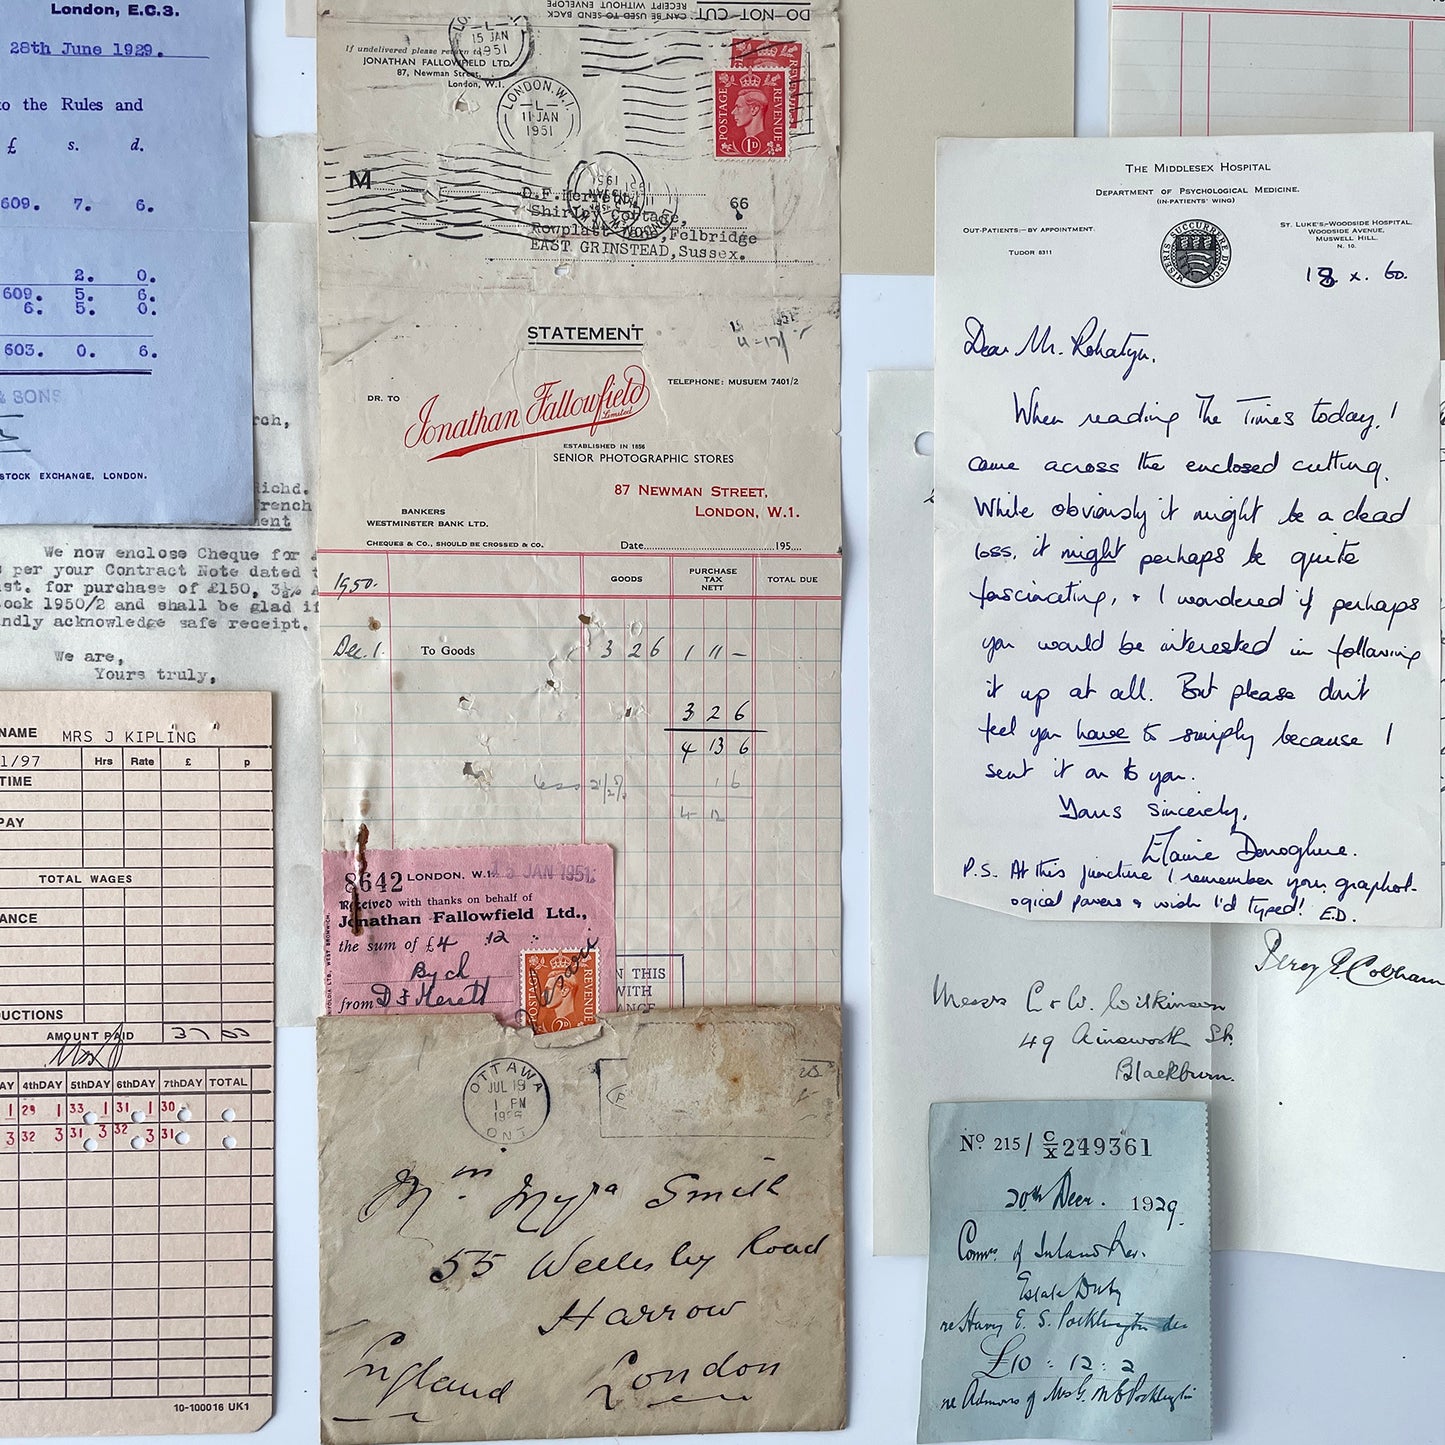 London, E.C.3.
28th June 1929.
to the Rules and
£ s. d.
609. 7. 6.
2. 0.
609. 5. 6.
6. 5. 0.
603. 0. 6.
& SONS
STOCK EXCHANGE, LONDON.
rch,
Richd.
French
ent
We now enclose Cheque for
per your Contract Note dated
st. for purchase of £150, 3½%
ock 1950/2 and shall be glad if
ndly acknowledge safe receipt.
We are,
Yours truly,
NAME MRS J KIPLING
1/97 Hrs Rate £ p
TIME
PAY
TOTAL WAGES
ANCE
DUCTIONS
AMOUNT PAID 37
AY 4thDAY 5thDAY 6thDAY 7thDAY TOTAL
1 29 1 33 1 31 1 30
3 32 3 31 3 32 3 31
10-100016 UK1
DO-NOT-CUT
CAN BE USED TO SEND BACK
RECEIPT WITHOUT ENVELOPE
15 JAN
1951
If undelivered please return to
JONATHAN FALLOWFIELD LTD.
87, Newman Street,
London, W.1.
LONDON.W.1
-L-
11 JAN
1951
POSTAGE REVENUE
1D
M
D.F.Herrett,
66
Shirley Cottage,
Rowplatt Lane, Felbridge
EAST GRINSTEAD, Sussex.
STATEMENT
TELEPHONE: MUSUEM 7401/2
DR. TO
Jonathan Fallowfield
Limited
ESTABLISHED IN 1856
SENIOR PHOTOGRAPHIC STORES
87 NEWMAN STREET,
LONDON, W.1.
BANKERS
WESTMINSTER BANK LTD.
CHEQUES & CO., SHOULD BE CROSSED & CO.
Date 195
GOODS PURCHASE TAX NETT TOTAL DUE
1950.
Dec. 1. To Goods 3 2 6 1 11 –
3 2 6
4 13 6
less 2½% 1 6
4 12
8642 LONDON, W.1. 15 JAN 1951
Received with thanks on behalf of
Jonathan Fallowfield Ltd.,
the sum of £4 12
By ch
from D F Herett
POSTAGE REVENUE
2D
N THIS
WITH
ANCE
OTTAWA
JUL 19
1 PM
ONT
Myra Smith
55 Wellesley Road
Harrow
England London
THE MIDDLESEX HOSPITAL
DEPARTMENT OF PSYCHOLOGICAL MEDICINE.
(IN-PATIENTS' WING)
OUT-PATIENTS:—BY APPOINTMENT.
TUDOR 8311
MISERIS SUCCURRERE DISCO
ST. LUKE'S—WOODSIDE HOSPITAL.
WOODSIDE AVENUE,
MUSWELL HILL.
N. 10.
18 x. 60.
Dear Mr. Rohatyn,
When reading The Times today, I
came across the enclosed cutting.
While obviously it might be a dead
loss, it might perhaps be quite
fascinating, & I wondered if perhaps
you would be interested in following
it up at all. But please don't
feel you have to simply because I
sent it on to you.
Yours sincerely,
Elaine Donoghue.
P.S. At this juncture I remember your graphol-
ogical powers & wish I'd typed! E.D.
Percy Cobham
Messrs C & W. Wilkinson
49 Ainsworth St.
Blackburn.
No. 215/ C/X 249361
20th Decr. 1929.
Comrs. of Inland Rev.
Estate Duty
re Harry E. S. Pocklington dec
£10 : 12 : 2
re Admors of Mrs G. M E Pocklington